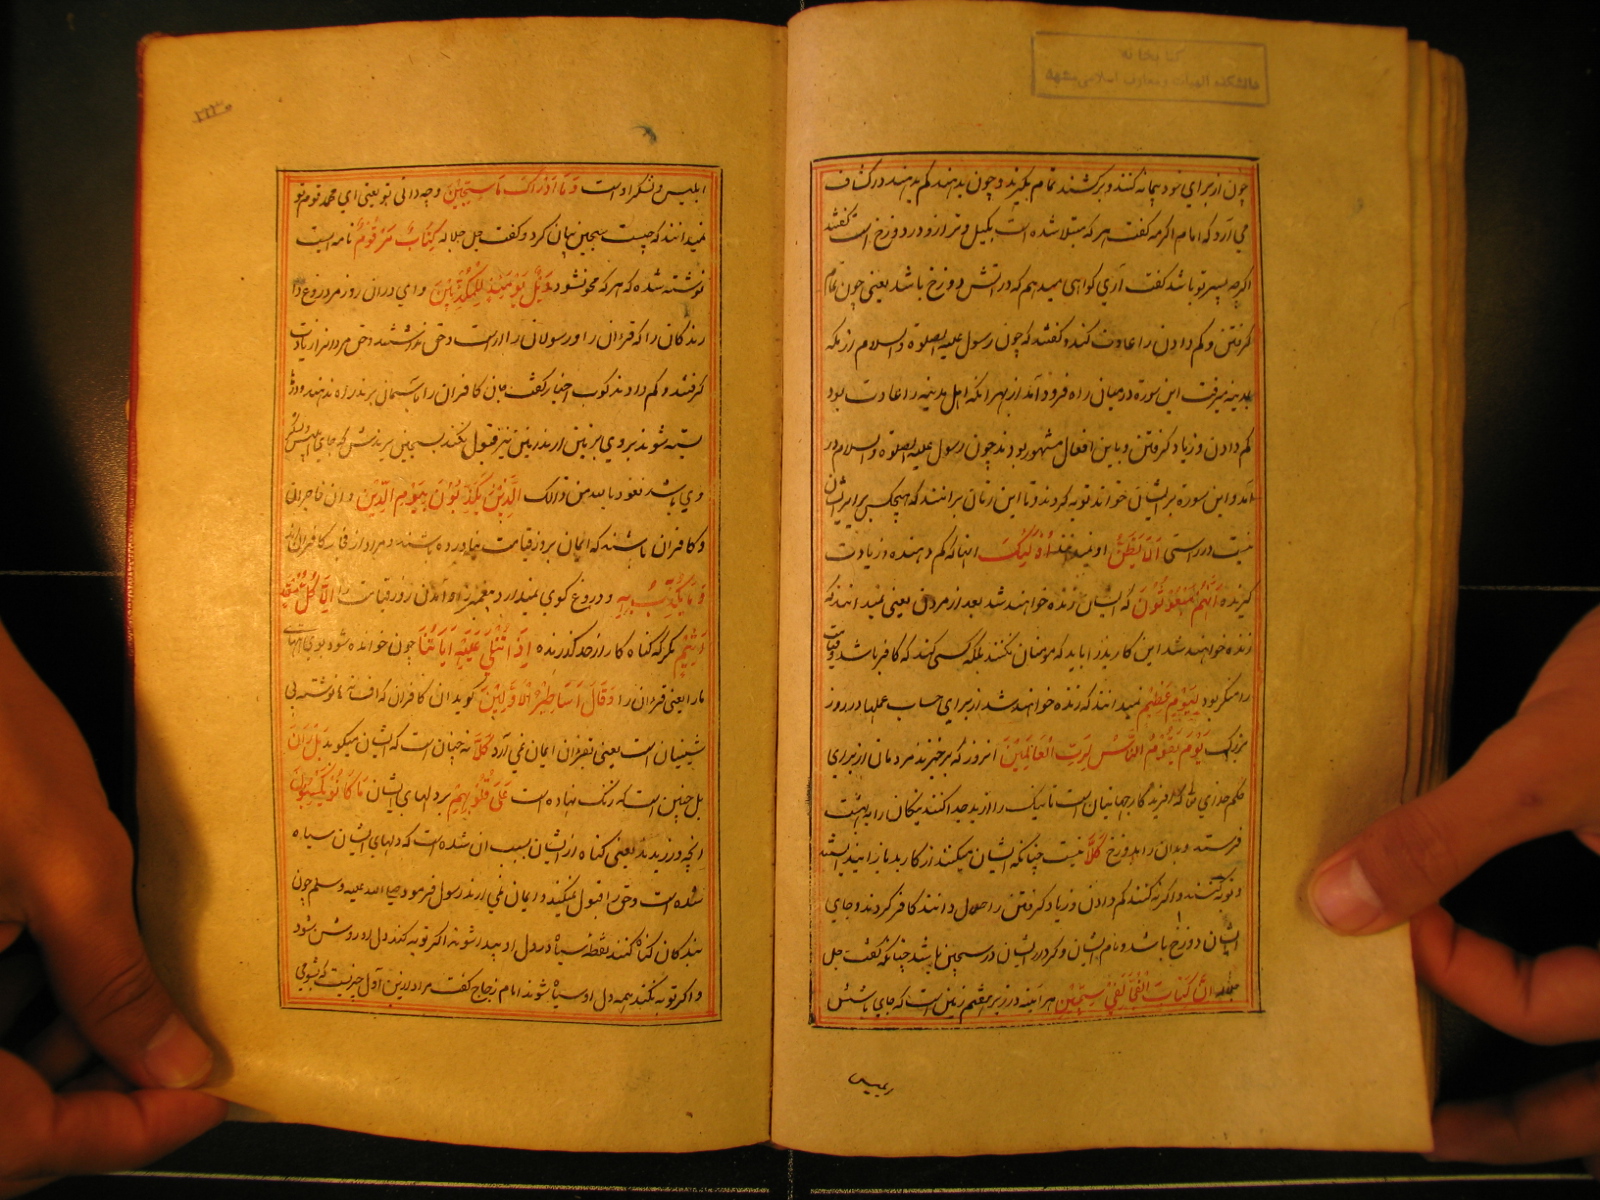 کتابخانه
دانشکده الهیات و معارف اسلامی مشهد
چون از برای خود پیمانه کنند و برکشند تمام بگیرند و چون بدهند کم بدهند در کشاف
می آرد که امام اکرمه گفت هر که مبتلا شده است بکیل و ترازو در دوزخ است گفتند
اگرچه پسر تو باشد گفت آری گواهی میدهم که در آتش دوزخ باشد یعنی چون تمام
گرفتن و کم دادن را عادت کند و گفتند که چون رسول علیه الصلوة والسلام از مکه
بمدینه میرفت این سوره در میان راه فرود آمد از بهر آنکه اهل مدینه را عادت بود
کم دادن و زیاد گرفتن و باین افعال مشهور بودند چون رسول علیه الصلوة والسلام در
آمد و این سورة بر ایشان خواند توبه کردند و تا این زمان برانند که هیچکس برابر ایشان
نیست در راستی اَلَا یَظُنُّ او نمیدانند اُولٰئِکَ آنانکه کم دهنده و زیادت
گیرنده اَنَّهُمْ مَبْعُوْثُوْنَ که ایشان زنده خواهند شد بعد از مردن یعنی نمیدانند که
زنده خواهند شد این کار نزاید که مومنان نکنند بلکه کسی کند که کافر باشد و قیامت
را منکر بود لِیَوْمٍ عَظِیْمٍ نمیدانند که زنده خواهند شد از برای حساب عملها در روز
بزرک یَوْمَ یَقُوْمُ النَّاسُ لِرَبِّ الْعَالَمِیْنَ آنروز که برخیزند مردمان از برای
حکم خدای تعا که آفریدگار جهانیان است تا نیک را از بد جدا کنند نیکان را به بهشت
فرستند و بدان را بدوزخ کَلَّا نیست چنانکه ایشان میکنند از کار بد باز ایند ایشان
و توبه کنند و اگر نه کنند کم دادن و زیاد گرفتن را حلال دانند کافر گردند و جای
ایشان دوزخ باشد و نام ایشان و کردار ایشان در سجین باشد چنانکه گفت جل
جلاله اِنَّ کِتَابَ الْفُجَّارِ لَفِیْ سِجِّیْنٍ هر آینه در زیر هفتم زمین است که جای باشش
ابلیس
ابلیس و لشکر اوست وَمَا اَدْرَاکَ مَا سِجِّیْنٌ و چه دانی تو یعنی ای محمد قوم تو
نمیدانند که چیست سجین بیان کرد و گفت جل جلاله کِتَابٌ مَرْقُوْمٌ نامه ایست
نوشته شده که هرگه محو نشود وَیْلٌ یَوْمَئِذٍ لِلْمُکَذِّبِیْنَ وای دران روز مر دروغ دا
رندکان را که قران را و رسولان را راست و حق ندانستند و حق مردم را زیادت
گرفتند و کم دادند کعب احبار گفت جان کافران را باسمان برند راه ندهند و در
بسته شوند بروی بزمین ارند زمین نیز قبول نکند بسجین برندش که جای ابلیس و لشکر
وی باشد نعوذ بالله من ذالک اَلَّذِیْنَ یُکَذِّبُوْنَ بِیَوْمِ الدِّیْنِ و ان فاجران
و کافران باشند که ایمان بروز قیامت نیاورده باشند و مراد از فجار کافران اند
وَمَا یُکَذِّبُ بِهٖ و دروغ گوی نمیدارد پیغمبر را و آمدن روز قیامت را اِلَّا کُلُّ مُعْتَدٍ
اَثِیْمٍ مگر گناه کار از حد گذرنده اِذَا تُتْلٰی عَلَیْهِ اٰیَاتُنَا چون خوانده شود بروی آیتهای
مارا یعنی قران را وَقَالَ اَسَاطِیْرُ الْاَوَّلِیْنَ گوید ان کافران که افسانه ها نوشته پی
شینیان است یعنی بقران ایمان نمی آرد کَلَّا نه چنان است که ایشان میگوید بَلْ رَانَ
بل چنین است که زنک نهاده است عَلٰی قُلُوْبِهِمْ بر دلهای ایشان مَا کَانُوْ یَکْسِبُوْنَ
آنچه ورزیدند یعنی گناه از ایشان بسبب ان شده است که دلهای ایشان سیاه
شده است و حق را قبول نمیکنند و ایمان نمی ارند رسول فرمود صلی الله علیه وسلم چون
بندکان گناه کنند نقطه سیاه در دل او پیدا شود اگر توبه کند دل او روشن شود
و اگر توبه نکند همه دل او سیاه شوند امام زجاج گفت مراد ازین آول چیزیست که بشومی